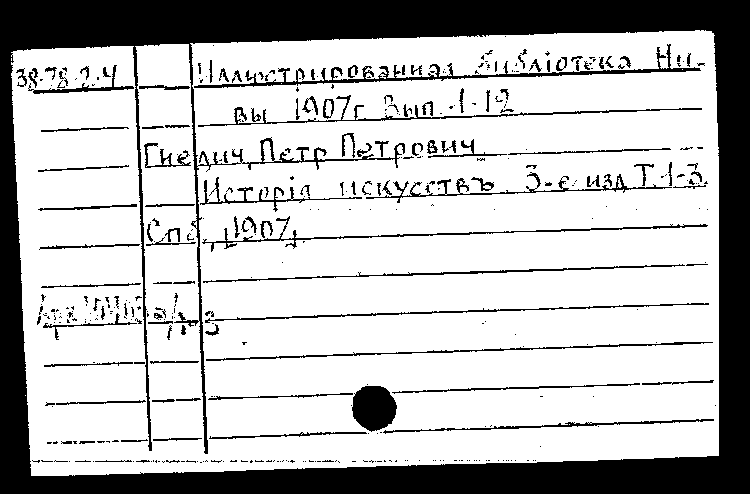 38-78-2-4 Иллюстрированная библіотека Ни-
вы 1907г. Вып. 1-12
Гнедич, Петр Петрович
Исторія искусствъ. 3-е изд. Т.1-3.
Спб., [1907].
/1-3